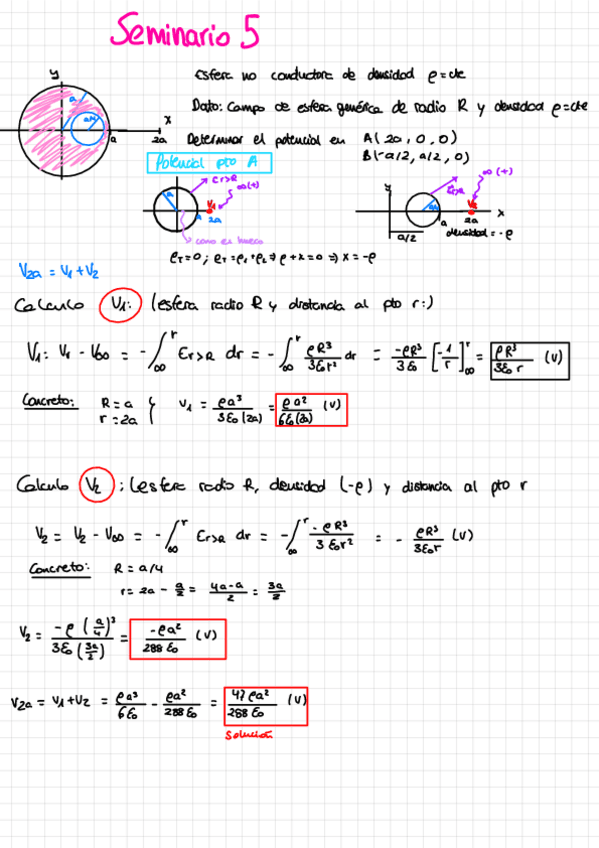 Seminario 5
Esfera no conductora de densidad ρ=cte
Dato: Campo de esfera genérica de radio R y densidad ρ=cte
Determinar el potencial en A(2a, 0, 0)
B(-a/2, a/2, 0)
y
x
a
a/4
a
2a
Potencial pto A
Er>R
∞(+)
a
V1
a
2a
como es hueco
y
Er>R
∞(+)
a/4
V2
a
2a
x
a/2
densidad = -ρ
ρT=0; ρT=ρ1+ρ2 ⇒ ρ+x=0 ⇒ x=-ρ
V2a = V1+V2
Calculo V1: (esfera radio R y distancia al pto r:)
V1: Vr - V∞ = -∫∞^r Er>R dr = -∫∞^r ρR³/3ε0r² dr = -ρR³/3ε0 [-1/r]∞^r = ρR³/3ε0r (V)
Concreto: R=a
r=2a } V1 = ρa³/3ε0(2a) = ρa²/6ε0(2a) (V)
Calculo V2: (esfera radio R, densidad (-ρ) y distancia al pto r
V2 = V2 - V∞ = -∫∞^r Er>R dr = -∫∞^r -ρR³/3ε0r² = - ρR³/3ε0r (V)
Concreto: R = a/4
r= 2a - a/2 = 4a-a/2 = 3a/2
V2 = -ρ(a/4)³/3ε0(3a/2) = -ρa²/288ε0 (V)
V2a = V1+V2 = ρa³/6ε0 - ρa²/288ε0 = 47ρa²/288ε0 (V)
Solución